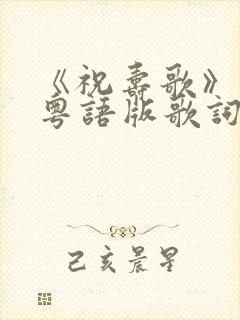 《祝壽歌》
粵語版歌詞
己亥晨星